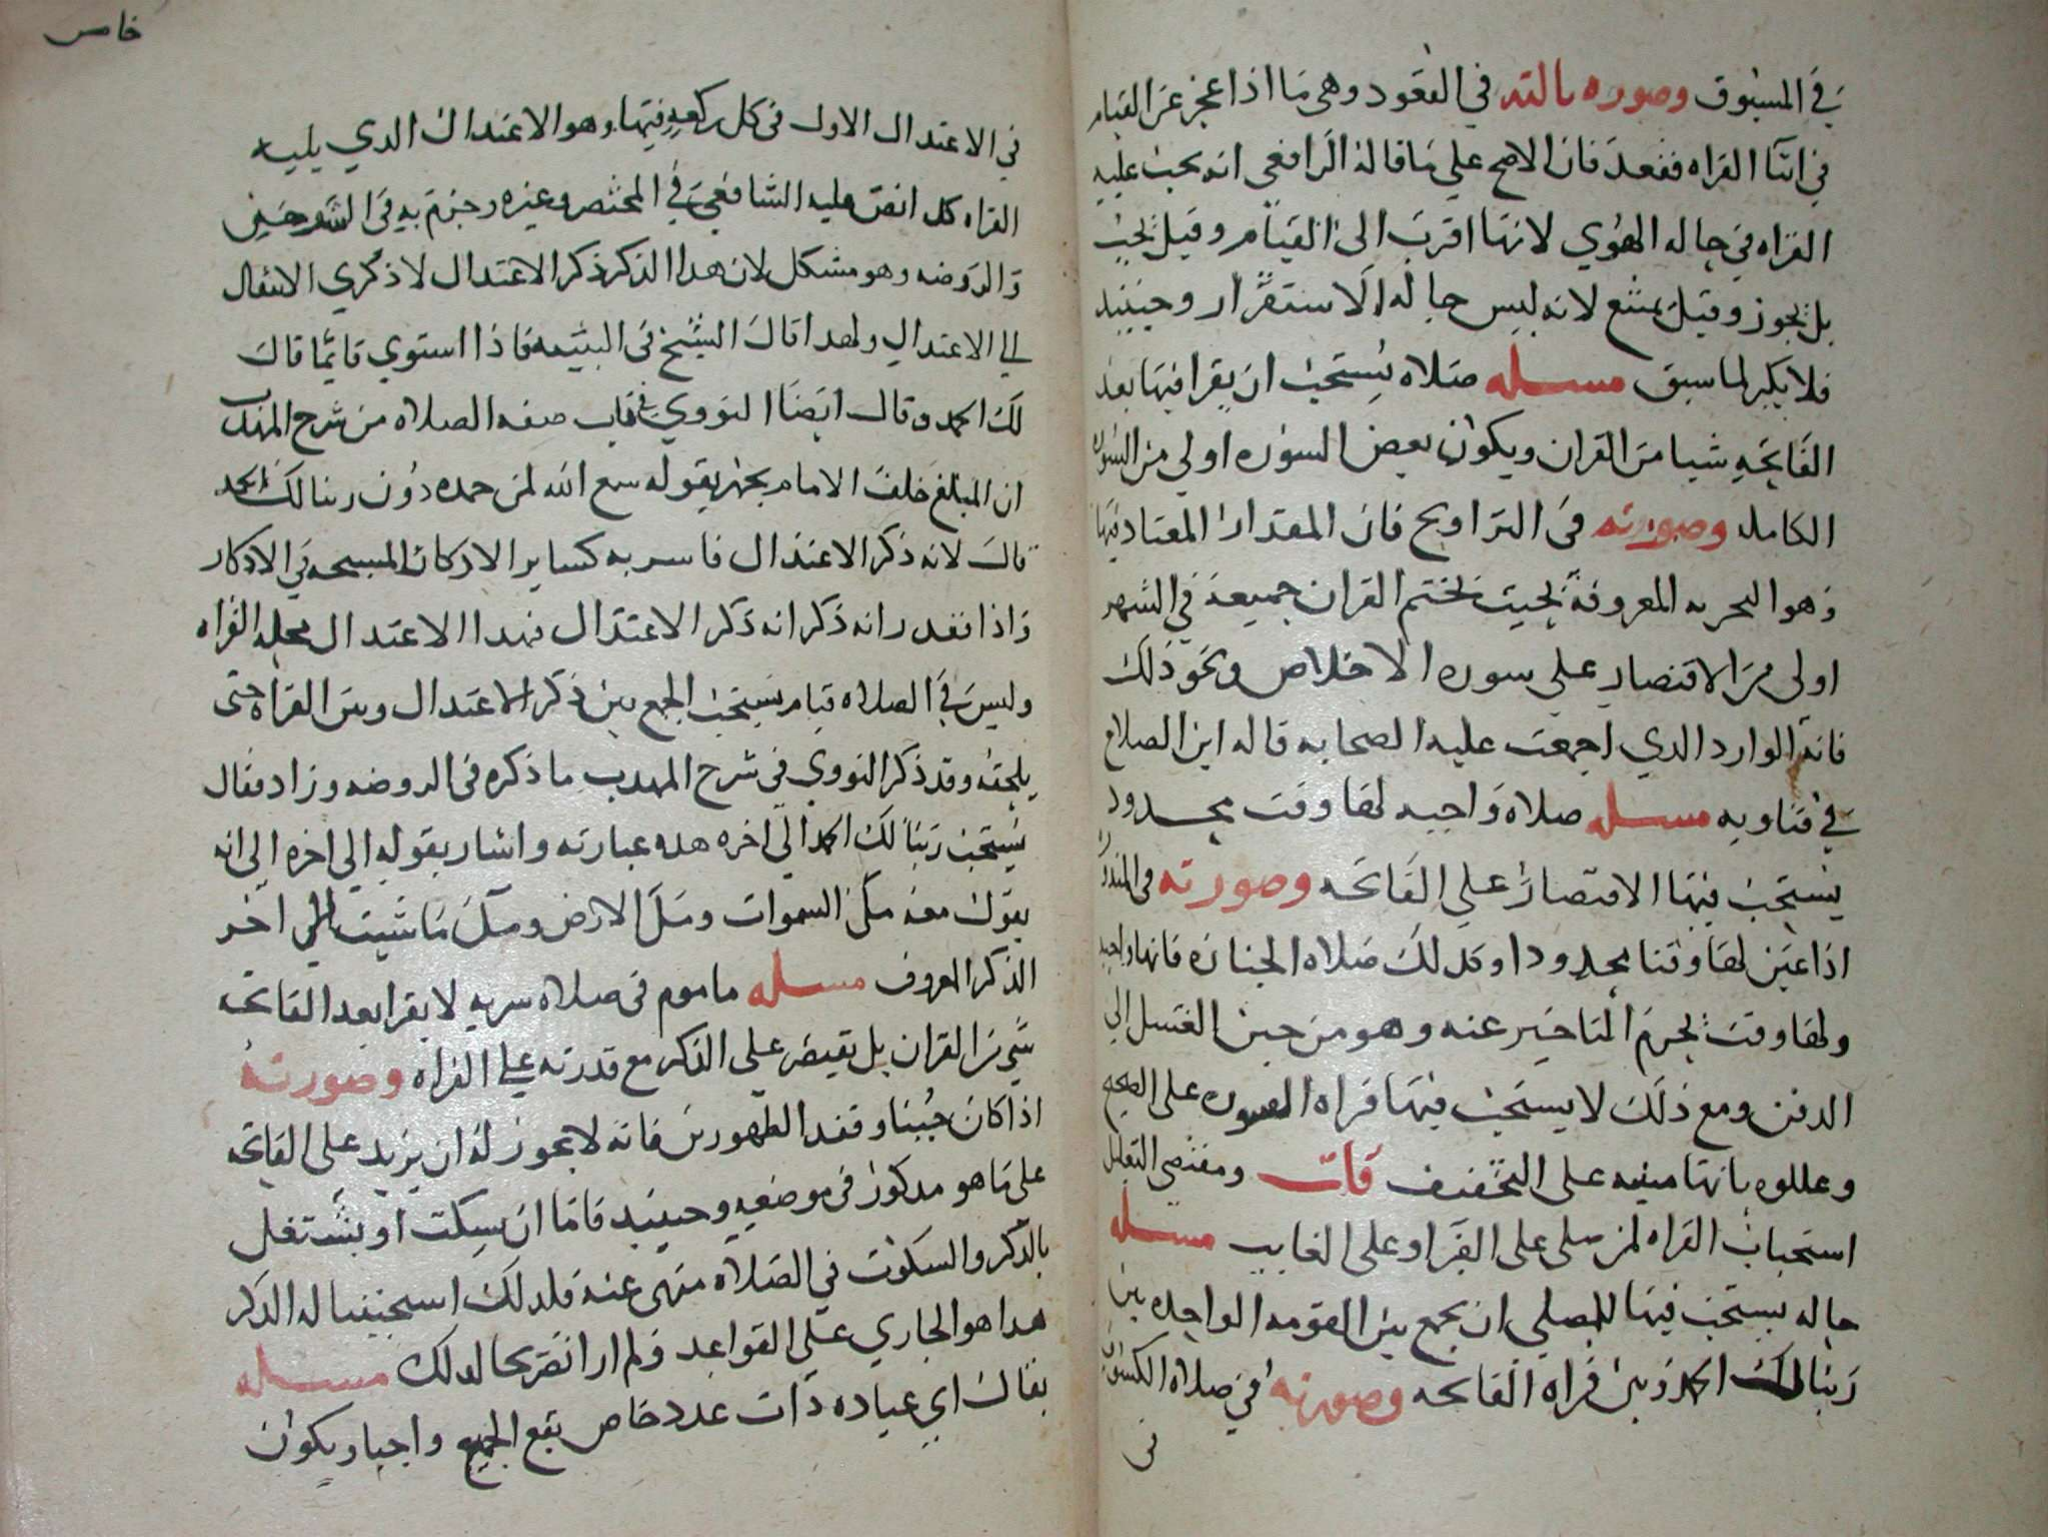 في المسبوق وصوره ثالثه في القعود وهي ما اذا عجز عن القيام
في اثنا القراه فقعد فان الاصح علي ما قاله الرافعي انه يجب عليه
القراه في حاله الهوي لانها اقرب الى القيام وقيل يجب
بل يجوز وقيل يمتنع لانه ليس حاله الاستقرار وحينيد
فلا يكبر لما سبق مسله صلاه يستحب ان يقرا فيها بعد
الفاتحه شيا من القران ويكون بعض السوره اولي من السوره
الكامله وصورته في التراويح فان المقدار المعتاد فيها
وهو التجزيه المعروفة بحيث يختم القران جميعه في الشهر
اولى من الاقتصار علي سوره الاخلاص ونحو ذلك
فانه الوارد الدي اجمعت عليه الصحابه قاله ابن الصلاح
في فتاويه مسله صلاه واجبه لها وقت محدود
يستحب فيها الاقتصار علي الفاتحه وصورته في المندور
اذا عين لها وقتا محدودا وكدلك صلاه الجنازه فانها واجبه
ولها وقت يحرم التاخير عنه وهو من حين الغسل الي
الدفن ومع ذلك لا يستحب فيها قراه السوره على الصحيح
وعللوه بانها مبنيه على التخفيف قلت ومقتضى التعليل
استحباب القراه لمن صلى على القبر او على الغايب مسله
حاله يستحب فيها للمصلي ان يجمع بين القومه الواحده بين
ربنا لك الحمد وبين قراه الفاتحه وصورته في صلاه الكسوف
في
خامس
في الاعتدال الاول في كل ركعه فيها وهو الاعتدال الدي يليه
القراه كدا نص عليه الشافعي في المختصر وغيره وجزم به في الشرحين
والروضه وهو مشكل لان هدا الدكر ذكر الاعتدال لا ذكر الانتقال
الي الاعتدال ولهدا قال الشيخ في التنبيه فاذا استوي قايما قال
لك الحمد وقال ايضا النووي في باب صفه الصلاه من شرح المهدب
ان المبلغ خلف الامام يجهر بقوله سمع الله لمن حمده دون ربنا لك الحمد
قال لانه ذكر الاعتدال فاسر به كساير الاركان المسبحه في الادكار
واذا تقدر انه ذكر انه ذكر الاعتدال فهدا الاعتدال محله القراه
وليس في الصلاه قيام يستحب الجمع بين ذكر الاعتدال وبين القراه حتى
يلحقه وقد ذكر النووي في شرح المهدب ما ذكره في الروضه وزاد فقال
يستحب ربنا لك الحمد الي اخره هده عبارته واشار بقوله الي اخره الي انه
يقول معه ملئ السموات ومل الارض ومل ما شيت الي اخر
الدكر المعروف مسله ماموم في صلاه سريه لا يقرا بعد الفاتحه
شي من القران بل يقتصر علي الدكر مع قدرته علي القراه وصورته
اذا كان جنبا وفقد الطهورين فانه لا يجوز له ان يزيد علي الفاتحه
علي ما هو مدكور في موضعه وحينيد فاما ان يسكت او يشتغل
بالدكر والسكوت في الصلاه منهي عنه فلدلك استحببنا له الدكر
هدا هو الجاري علي القواعد ولم ار تصريحا لدلك مسله
يقال اي عباده ذات عدد خاص يقع الجميع واجبا ويكون